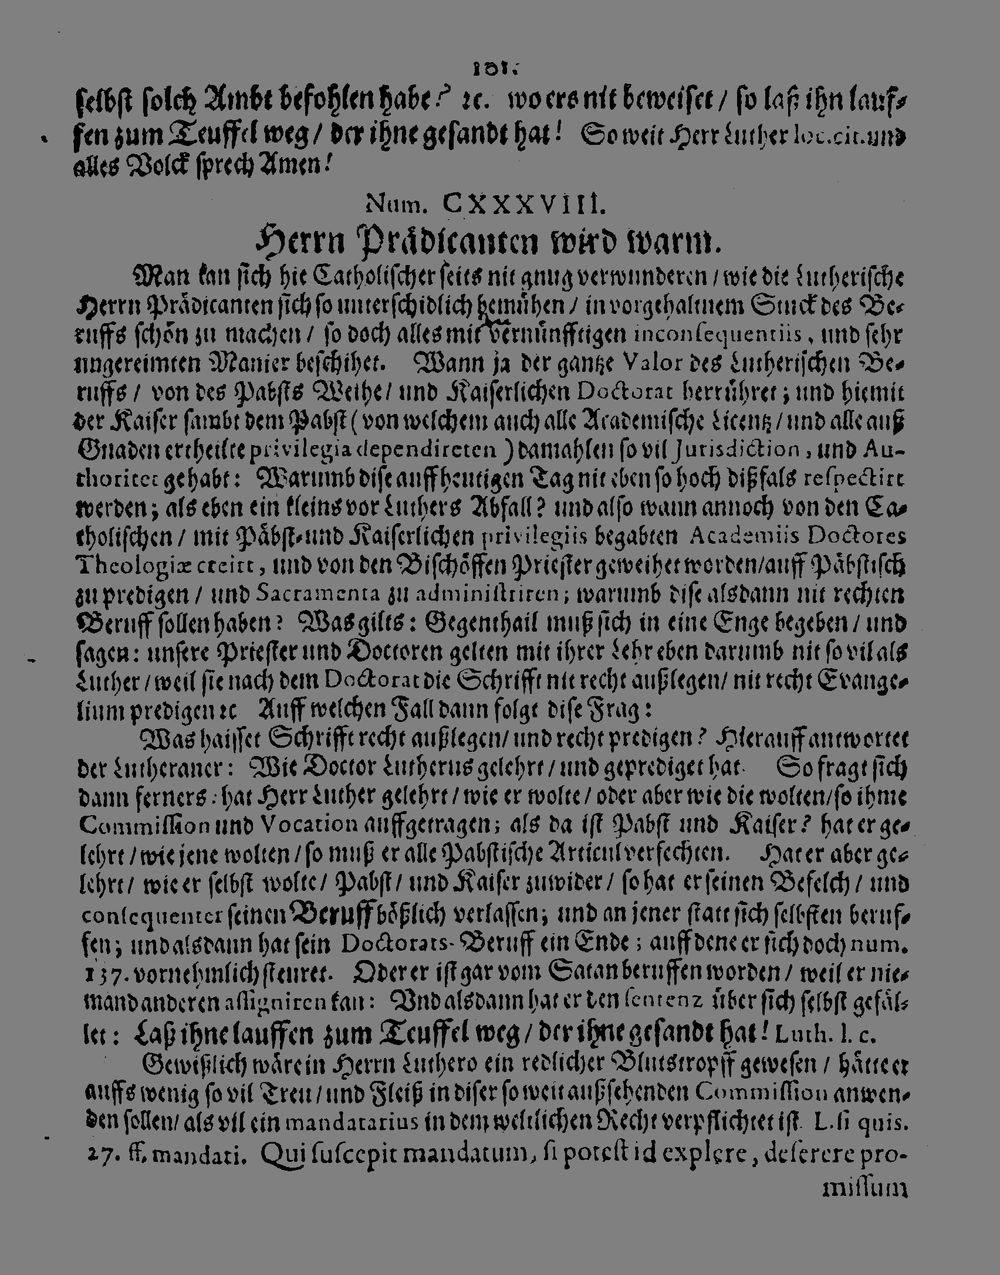 101.
selbst solch Ambt befohlen habe? ꝛc. wo ers nit beweiset / so laß ihn lauf-
fen zum Teuffel weg / der ihne gesandt hat! So weit Herr Luther loc. cit. und
alles Volck sprech Amen!
Num. CXXXVIII.
Herrn Prädicanten wird warm.
Man kan sich hie Catholischer seits nit gnug verwunderen / wie die Lutherische
Herrn Prädicanten sich so unterschidlich bemühen / in vorgehaltnem Stuck des Be-
ruffs schön zu machen / so doch alles mit vernünfftigen inconsequentiis, und sehr
ungereimten Manier beschihet. Wann ja der gantze Valor des Lutherischen Be-
ruffs / von des Pabsts Weihe / und Kaiserlichen Doctorat herrühret; und hiemit
der Kaiser sambt dem Pabst (von welchem auch alle Academische Licentz / und alle auß
Gnaden ertheilte privilegia dependireten) damahlen so vil Jurisdiction, und Au-
thoritet gehabt: Warumb dise auff heutigen Tag nit eben so hoch dißfals respectirt
werden; als eben ein kleins vor Luthers Abfall? und also wann annoch von den Ca-
tholischen / mit Päbst- und Kaiserlichen privilegiis begabten Academiis Doctores
Theologiæ creirt, und von den Bischöffen Priester geweihet worden / auff Päbstisch
zu predigen / und Sacramenta zu administriren; warumb dise alsdann nit rechten
Beruff sollen haben? Was gilts: Gegenthail muß sich in eine Enge begeben / und
sagen: unsere Priester und Doctoren gelten mit ihrer Lehr eben darumb nit so vil als
Luther / weil sie nach dem Doctorat die Schrifft nit recht außlegen / nit recht Evange-
lium predigen ꝛc Auff welchen Fall dann folgt dise Frag:
Was haisset Schrifft recht außlegen / und recht predigen? Hierauff antwortet
der Lutheraner: Wie Doctor Lutherus gelehrt / und geprediget hat. So fragt sich
dann ferners: hat Herr Luther gelehrt / wie er wolte / oder aber wie die wolten / so ihme
Commission und Vocation auffgetragen; als da ist Pabst und Kaiser? hat er ge-
lehrt / wie jene wolten / so muß er alle Pabstische Articul verfechten. Hat er aber ge-
lehrt / wie er selbst wolte / Pabst / und Kaiser zuwider / so hat er seinen Befelch / und
consequenter seinen Beruff bößlich verlassen; und an jener statt sich selbsten beruf-
fen; und alsdann hat sein Doctorats-Beruff ein Ende; auff dene er sich doch num.
137. vornehmlich steuret. Oder er ist gar vom Satan beruffen worden / weil er nie-
mand anderen assigniren kan: Und alsdann hat er den sentenz über sich selbst gefäl-
let: Laß ihne lauffen zum Teuffel weg / der ihne gesandt hat! Luth. l. c.
Gewißlich wäre in Herrn Luthero ein redlicher Blutstropff gewesen / hätte er
auffs wenig so vil Treu / und Fleiß in diser so weit außsehenden Commission anwen-
den sollen / als vil ein mandatarius in dem weltlichen Recht verpflichtet ist. L. si quis.
27. ff. mandati. Qui suscepit mandatum, si potest id explere, deserere pro-
missum